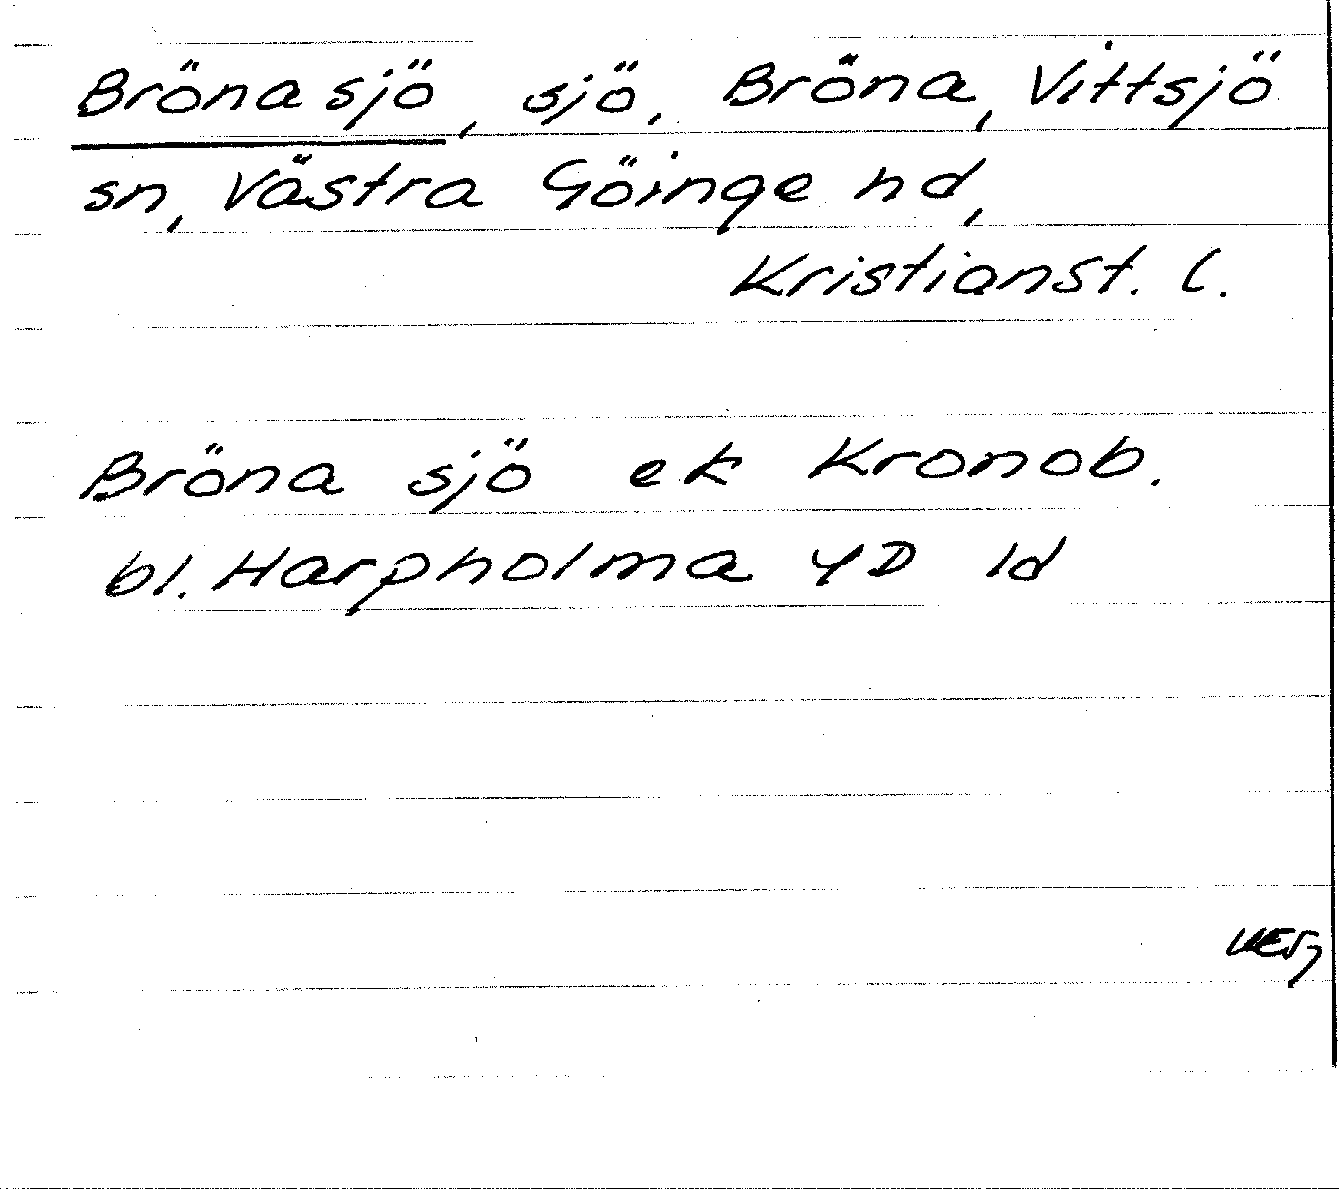 Bröna sjö, sjö, Bröna, Vittsjö
sn, Västra Göinge hd,
Kristianst. l.
Bröna sjö ek Kronob.
bl. Harpholma 4D 1d